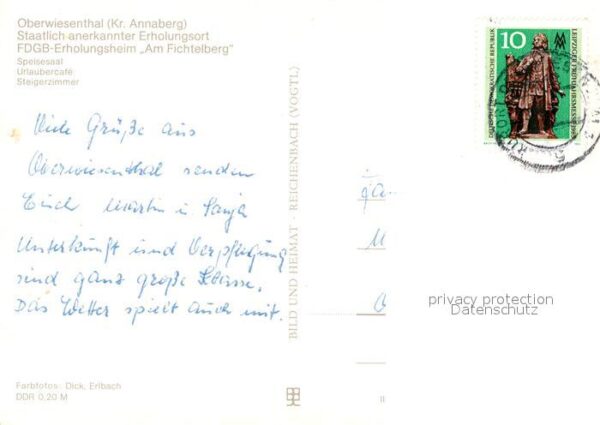 Oberwiesenthal (Kr. Annaberg)
Staatlich anerkannter Erholungsort
FDGB-Erholungsheim „Am Fichtelberg"
Speisesaal
Urlaubercafé
Steigerzimmer
10
DEUTSCHE DEMOKRATISCHE REPUBLIK
LEIPZIGER FRÜHJAHRSMESSE
Viele Grüße aus
Oberwiesenthal senden
Euch Martin u. Tanja
Unterkunft und Verpflegung
sind ganz große Klasse.
Das Wetter spielt auch mit.
BILD UND HEIMAT · REICHENBACH (VOGTL)
privacy protection
Datenschutz
Farbfotos: Dick, Erlbach
DDR 0,20 M